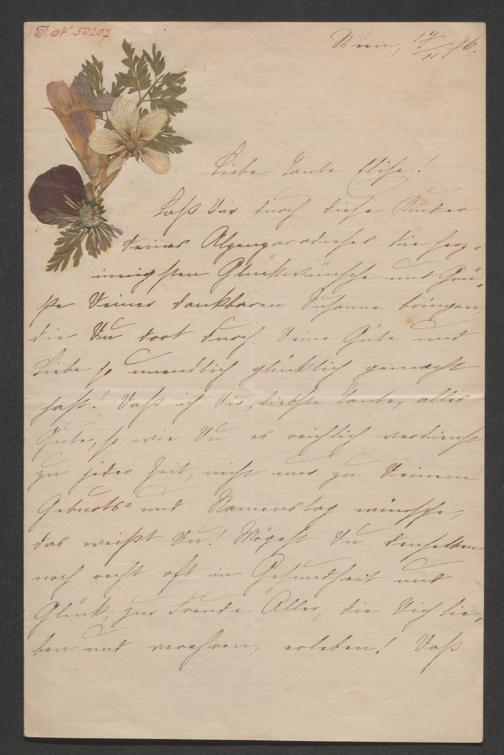 I. N 50207
Wien, 17/11 86.
Liebe Tante Elise!
Laß Dir durch diese Kinder
Deines Alpenparadieses die herz-
innigsten Glückwünsche und Grü-
ße Deiner dankbaren Susanne bringen,
die Du dort durch Deine Güte und
Liebe so unendlich glücklich gemacht
hast! Daß ich Dir, liebste Tante, alles
Gute, so wie Du es reichlich verdienst
zu jeder Zeit, nicht nur zu Deinem
Geburts= und Namenstag wünsche,
das weißt Du! Mögest Du denselben
noch recht oft in Gesundheit und
Glück, zur Freude Aller, die Dich lie-
ben und verehren, erleben! Daß